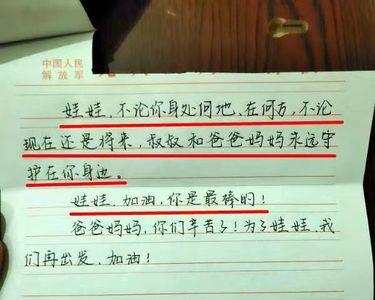 中国人民
解放军
娃娃,不论你身处何地、在何方,不论
现在还是将来,叔叔和爸爸妈妈永远守
护在你身边。
娃娃,加油,你是最棒的!
爸爸妈妈,你们辛苦了!为了娃娃,我
们再出发,加油!